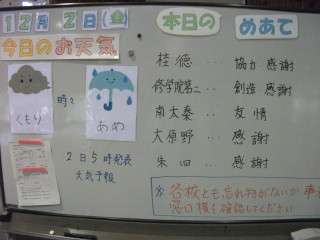 12月2日(金)
今日のお天気
本日のめあて
くもり
時々
あめ
2日5時発表
天気予報
桂徳‥協力 感謝
修学院第二‥創造 感謝
南太秦‥友情
大原野‥感謝
朱四‥感謝
各校とも、忘れ物がないか
確認してください